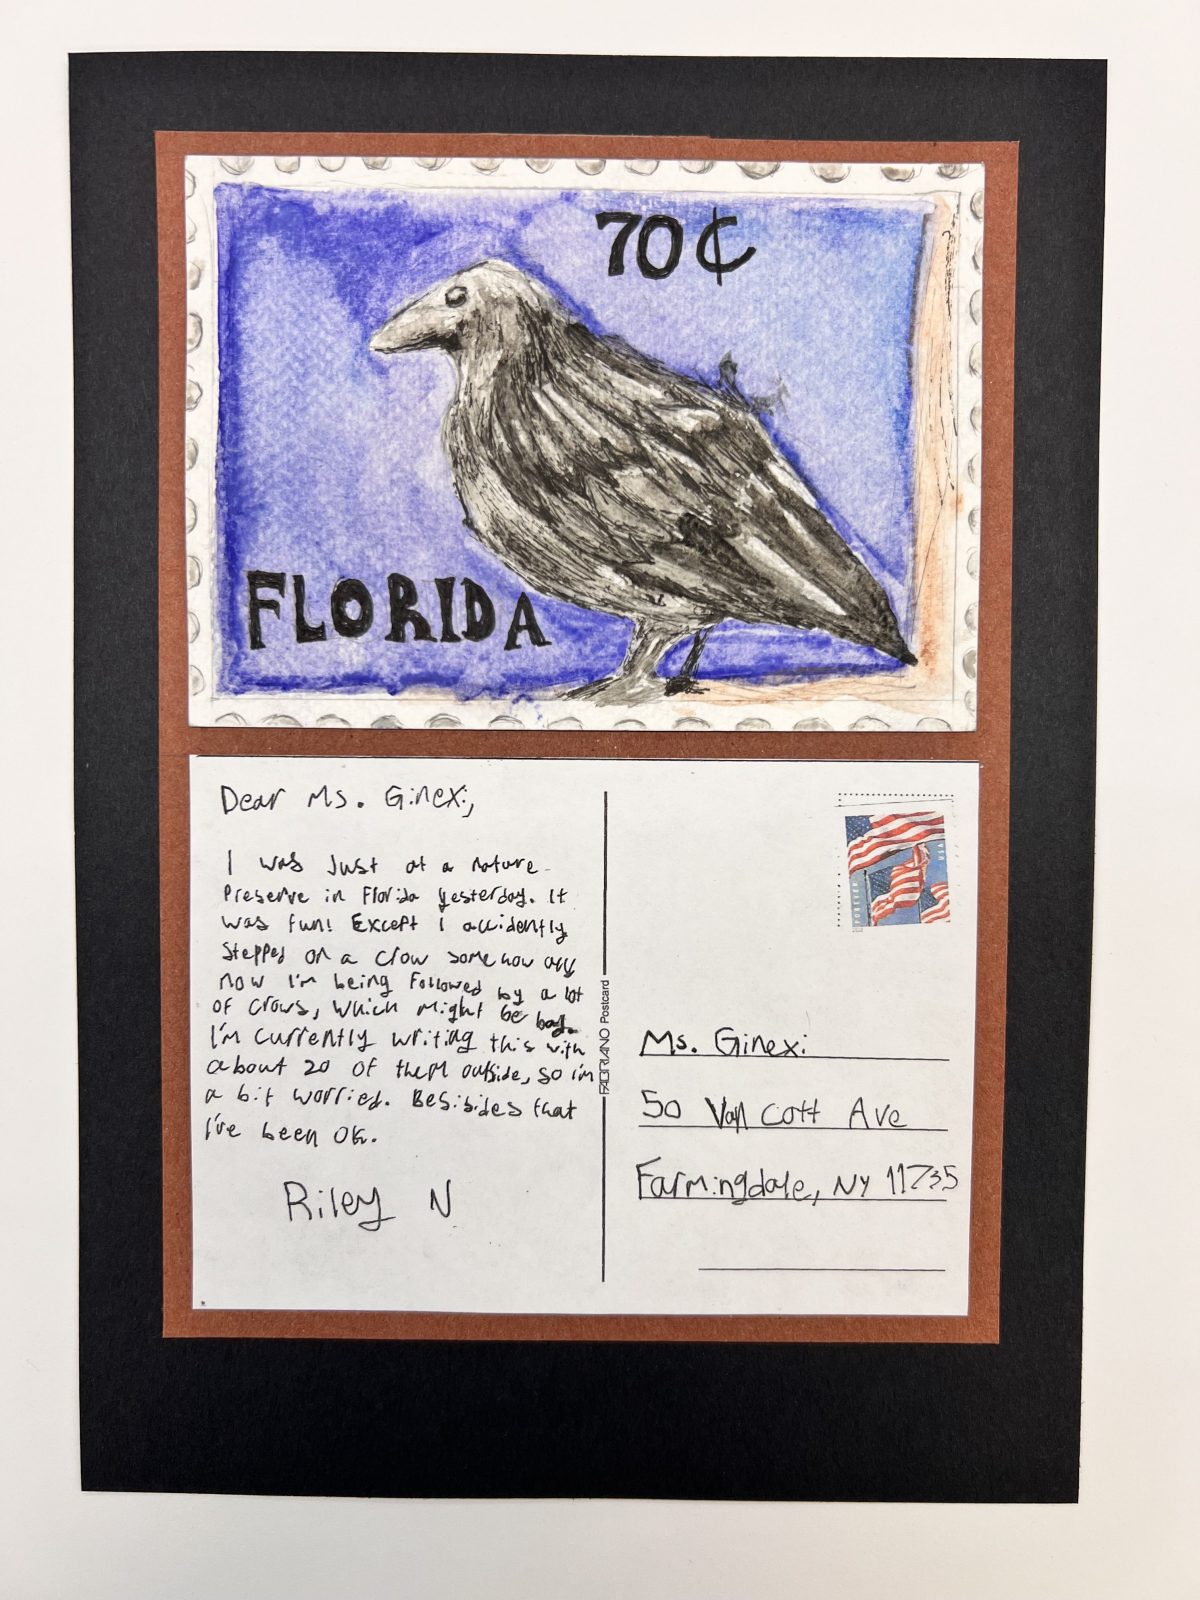 70¢
FLORIDA
Dear Ms. Ginexi,
I was Just at a nature
Preserve in Florida yesterday. It
was fun! Except I accidently
stepped on a crow some how
now I'm being followed by a lot
of crows, which might be bad.
I'm currently writing this with
about 20 of them outside, so i'm
a bit worried. Besibsides that
I've been OK.
Riley N
FABRIANO Postcard
FOREVER
USA
Ms. Ginexi
50 Van Cott Ave
Farmingdale, NY 11735